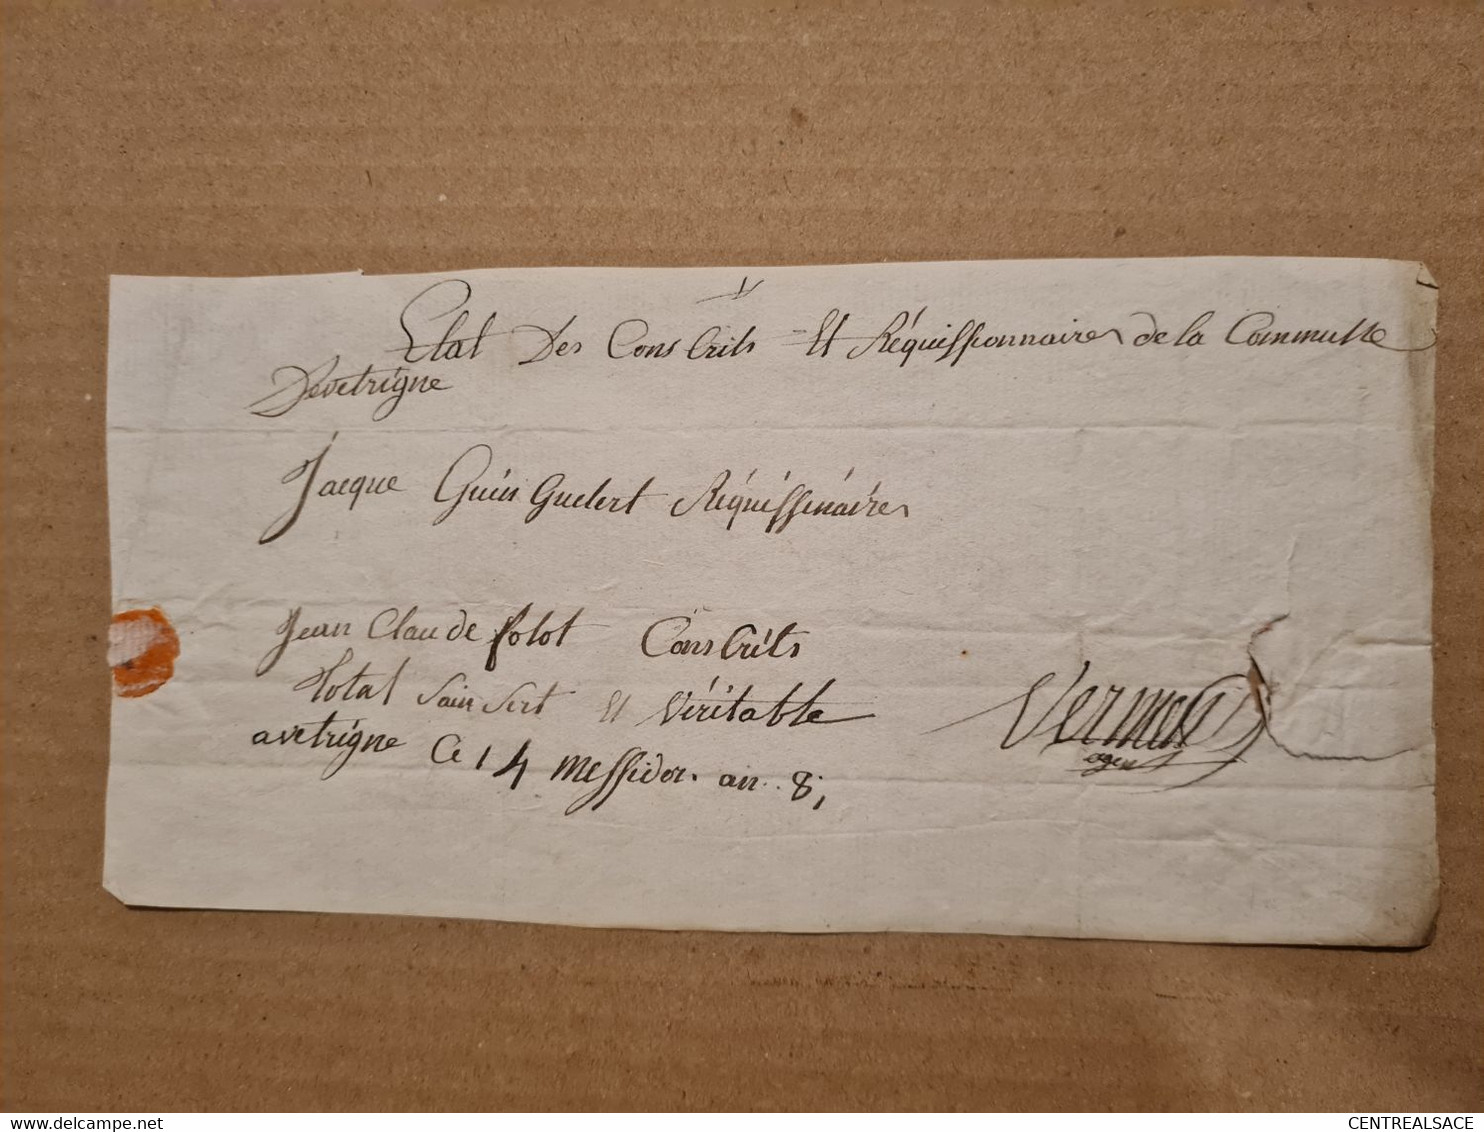 Etat Des Conscrits Et Réquissionnaires de la Commune
Devetrigne
Jacque Guin Guelert Réquissinaires
Jean Claude folot Conscrits
Total Sainsert et véritable
avetrigne Ce 14 messidor. an. 8,
agen
www.delcampe.net
CENTREALSACE